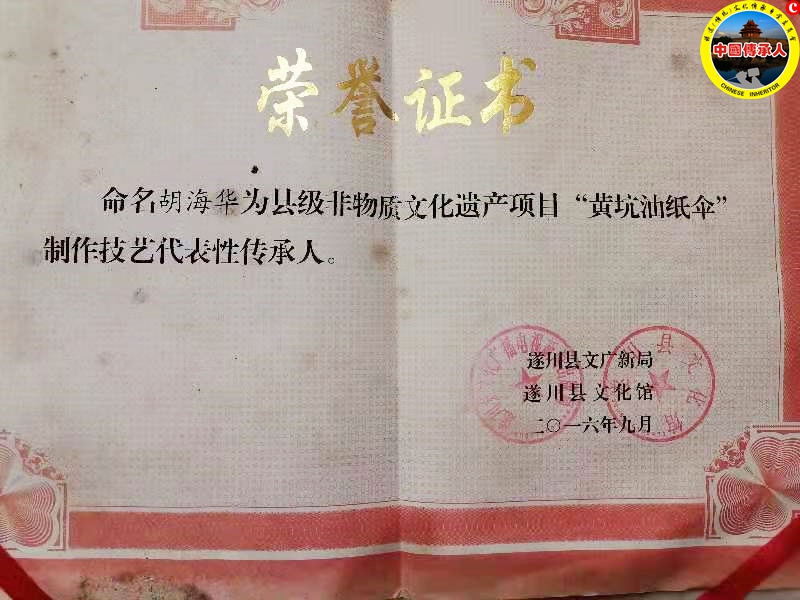 中國傳承人
CHINESE INHERITOR
C
荣誉证书
命名胡海华为县级非物质文化遗产项目“黄坑油纸伞”
制作技艺代表性传承人。
遂川县文广新局
遂川县文化馆
二〇一六年九月